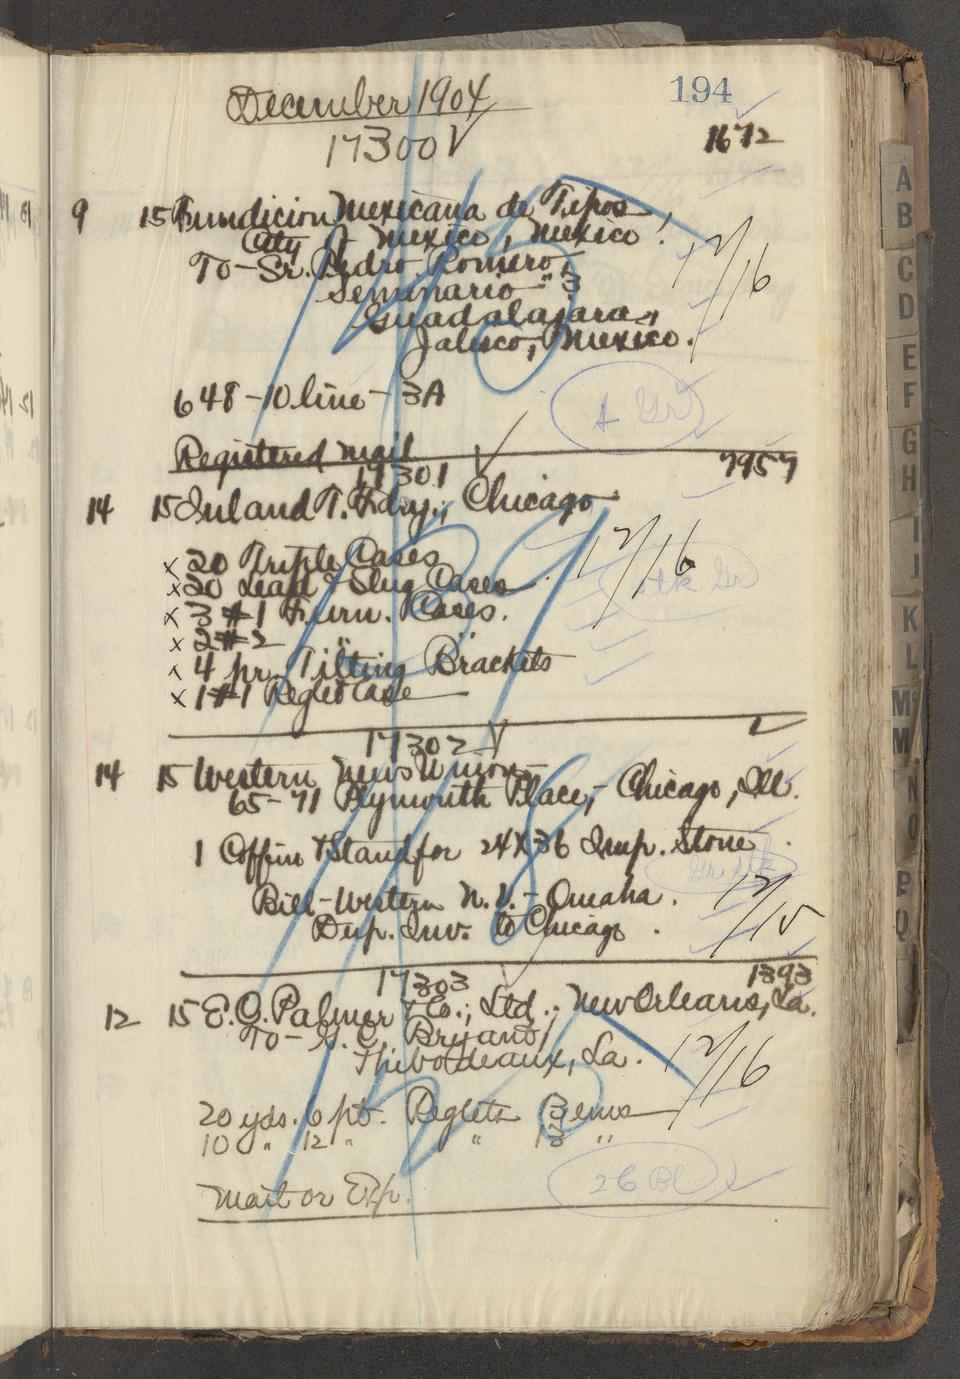 194
December 1904
17300 √
1672
9 15 Fundicion Mexicana de Tipos,
City of Mexico, Mexico.
To - Sr. Pedro Romero,
Seminario " 3
Guadalajara,
Jalisco, Mexico.
12/16
648 - 10 line - 3A
A Gr
Registered mail
17301 √
7957
14 15 Inland T. Fdry., Chicago
12/16
x 20 Triple Cases
x 20 Lead & Slug Cases
Stk Gr
x 3 #1 Furn. Cases.
x 2 #2 " "
x 4 pr. Tilting Brackets
x 1 #1 Reglet Case
17302 √
14 15 Western News Union
65-71 Plymouth Place, - Chicago, Ill.
1 Coffin & Stand for 24 X 36 Imp. Stone.
Gr Stk
Bill - Western N. U. - Omaha.
12/15
Dup. Inv. to Chicago.
17303 √
1393
12 15 E. O. Palmer & Co., Ltd., New Orleans, La.
To - G. C. Bryand,
Thibodeaux, La.
12/16
20 yds. 6 pt. Reglets 13 ems
10 " 12 " " 13 "
26 Bl
Mail or Exp.
A
B
C
D
E
F
G
H
I
J
K
L
Mc
M
N
O
P
Q